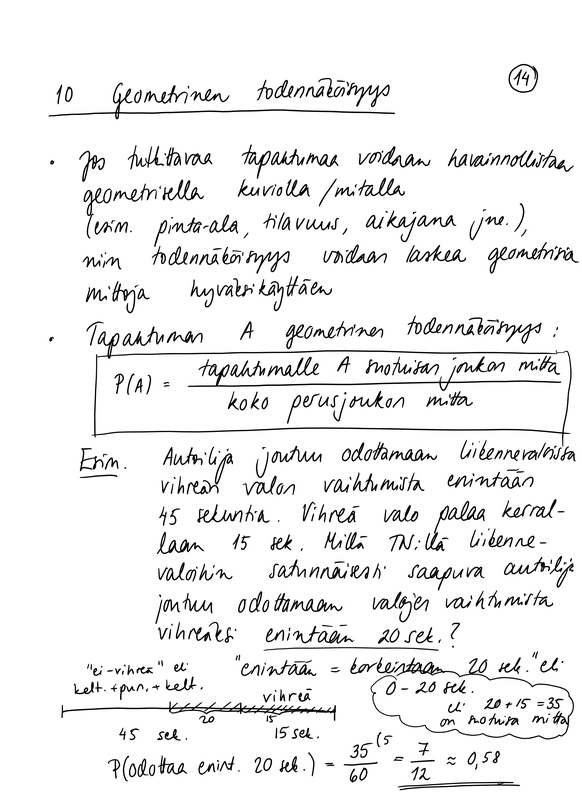 14
10 Geometrinen todennäköisyys
• Jos tutkittavaa tapahtumaa voidaan havainnollistaa
geometrisella kuviolla / mitalla
(esim. pinta-ala, tilavuus, aikajana jne.),
niin todennäköisyys voidaan laskea geometrisia
mittoja hyväksikäyttäen
• Tapahtuman A geometrinen todennäköisyys:
P(A) = tapahtumalle A suotuisan joukon mitta
koko perusjoukon mitta
Esim. Autoilija joutuu odottamaan liikennevaloissa
vihreän valon vaihtumista enintään
45 sekuntia. Vihreä valo palaa kerral-
laan 15 sek. Millä TN:llä liikenne-
valoihin satunnäisesti saapuva autoilija
joutuu odottamaan valojen vaihtumista
vihreäksi enintään 20 sek.?
"ei-vihreä" eli
kelt.+pun.+kelt.
vihreä
20 15
45 sek. 15 sek.
"enintään = korkeintaan 20 sek." eli
0-20 sek.
eli 20+15=35
on suotuisa mitta
P(odottaa enint. 20 sek.) = 35/60 (5 = 7/12 ≈ 0,58